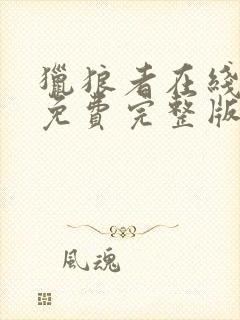 獵狼者在綫
免費完整版
風魂